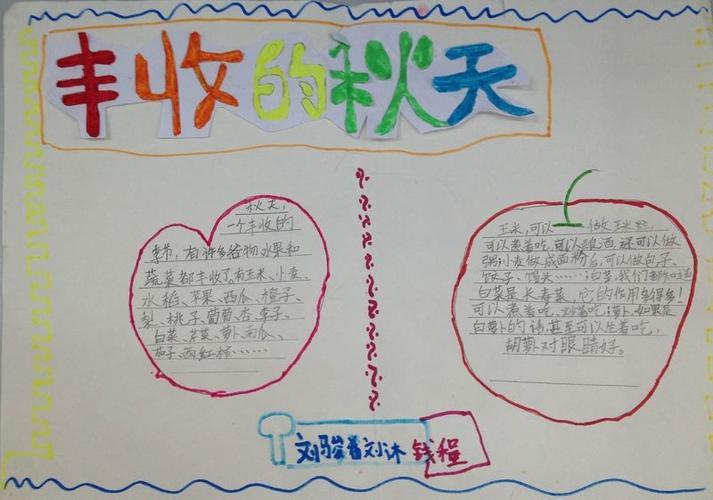 丰收的秋天
秋天，
一个丰收的
季节，有许多谷物水果和
蔬菜都丰收了。有玉米、小麦、
水稻、苹果、西瓜、橙子、
梨、桃子、葡萄、杏、李子、
白菜、芹菜、萝卜、南瓜、
茄子、西红柿……
玉米，可以 做
可以煮着吃，可以酿酒，还可以做
粥；小麦做成面粉后，可以做包子、
饺子、馒头……；白菜，我们都知道
白菜是长寿菜，它的作用多得多！
可以煮着吃、炒着吃；萝卜，如果是
白萝卜的话，甚至可以生着吃，
胡萝卜对眼睛好。
刘骏 刘沐 钱程